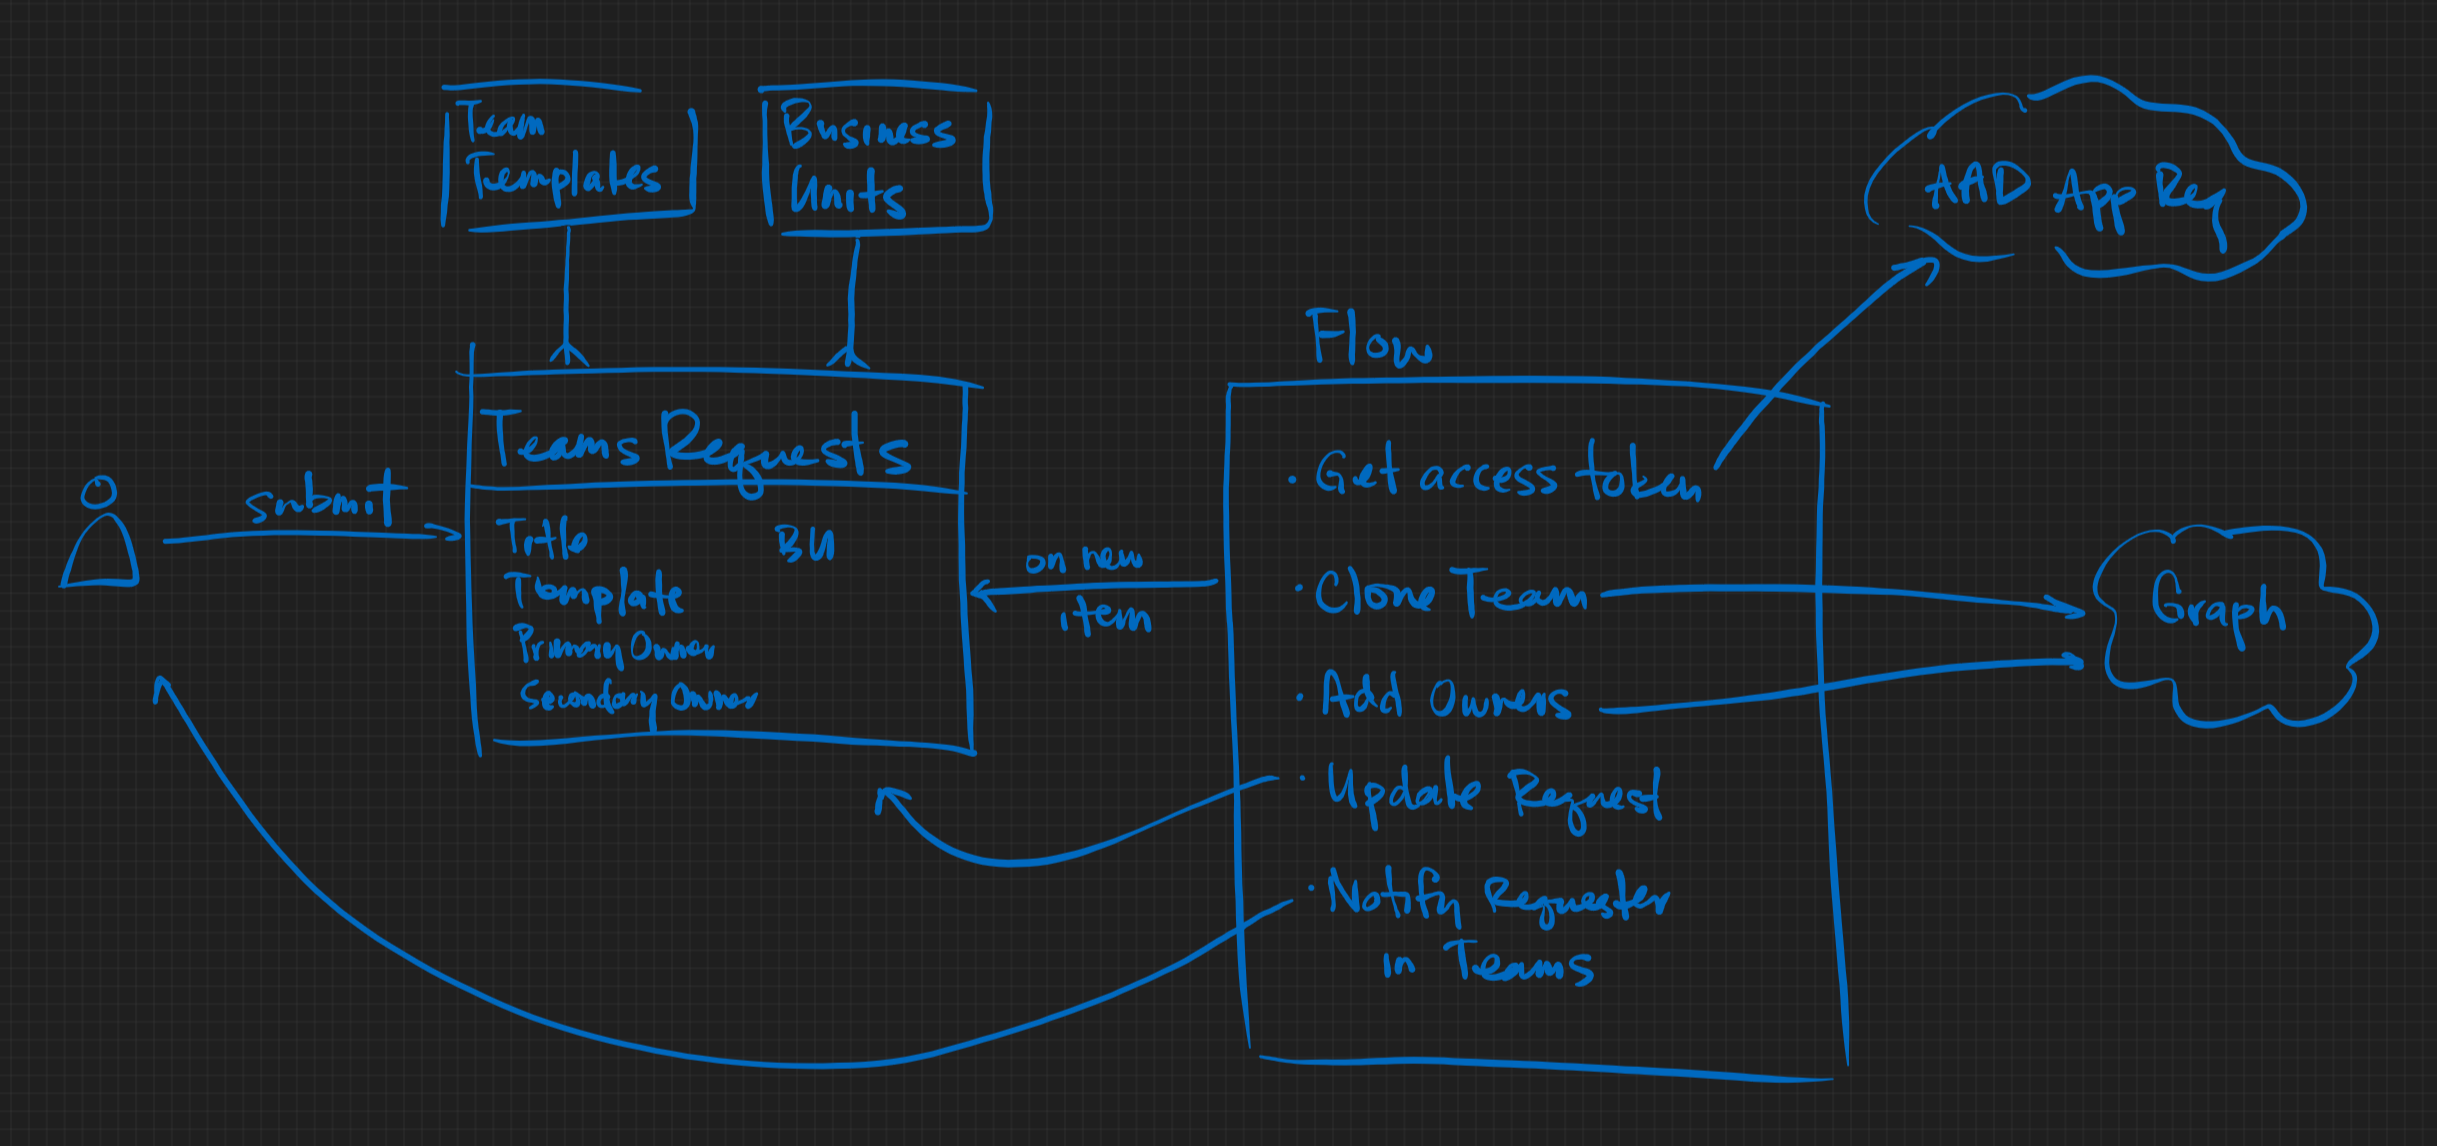 Team
Templates
Business
Units
AAD App Reg
Flow
Teams Requests
submit
Title
BU
Template
Primary Owner
Secondary Owner
on new
item
· Get access token
· Clone Team
· Add Owners
· Update Request
· Notify Requester
in Teams
Graph